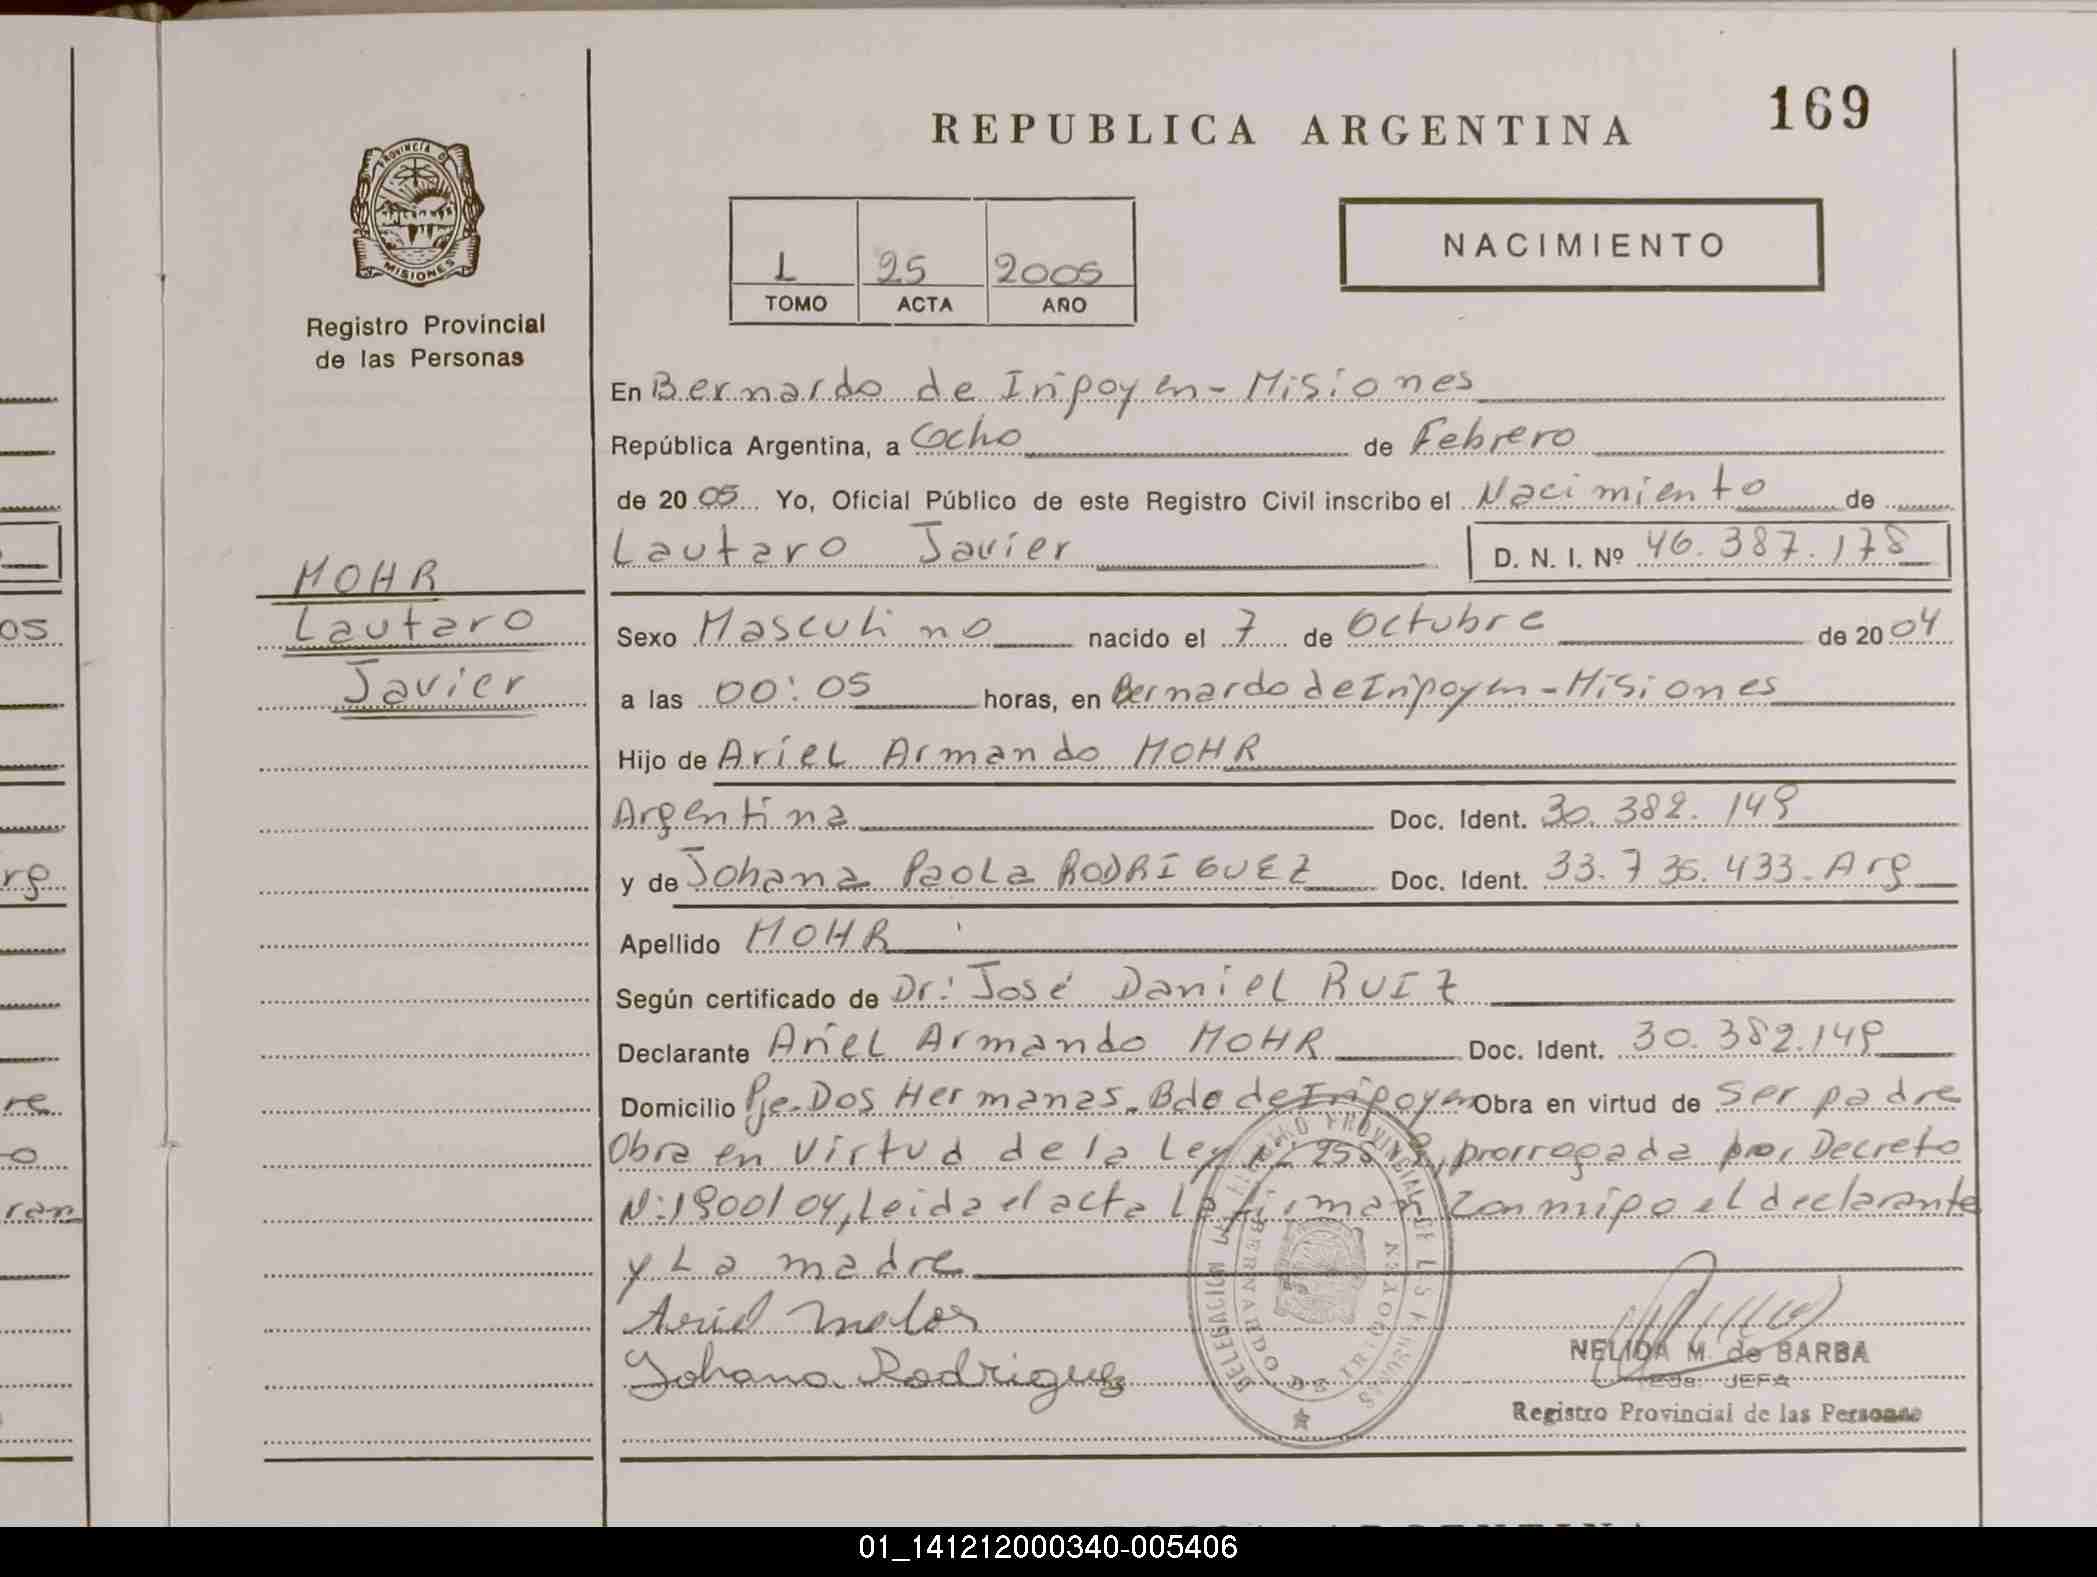 169
REPUBLICA ARGENTINA
PROVINCIA DE
MISIONES
Registro Provincial
de las Personas
NACIMIENTO
1 25 2005
TOMO ACTA AÑO
En Bernardo de Irigoyen - Misiones
República Argentina, a Ocho de Febrero
de 2005 Yo, Oficial Público de este Registro Civil inscribo el Nacimiento de
Lautaro Javier D. N. I. Nº 46.387.178
MOHR
Lautaro
Javier
Sexo Masculino nacido el 7 de Octubre de 2004
a las 00:05 horas, en Bernardo de Irigoyen - Misiones
Hijo de Ariel Armando MOHR
Argentina Doc. Ident. 30.382.149
y de Johana Paola RODRIGUEZ Doc. Ident. 33.735.433. Arg
Apellido MOHR
Según certificado de Dr: José Daniel RUIZ
Declarante Ariel Armando MOHR Doc. Ident. 30.382.149
Domicilio Pje. Dos Hermanas. Bdo de Irigoyen Obra en virtud de ser padre
Obra en virtud de la Ley prorrogada por Decreto
N: 1900/04, Leida el acta La firman conmigo el declarante
y La madre
Ariel
Johana Rodriguez
DELEGACION REGISTRO PROVINCIAL DE LAS PERSONAS
BERNARDO DE IRIGOYEN
NELIDA M. de BARBA
JEFA
Registro Provincial de las Personas
01_141212000340-005406